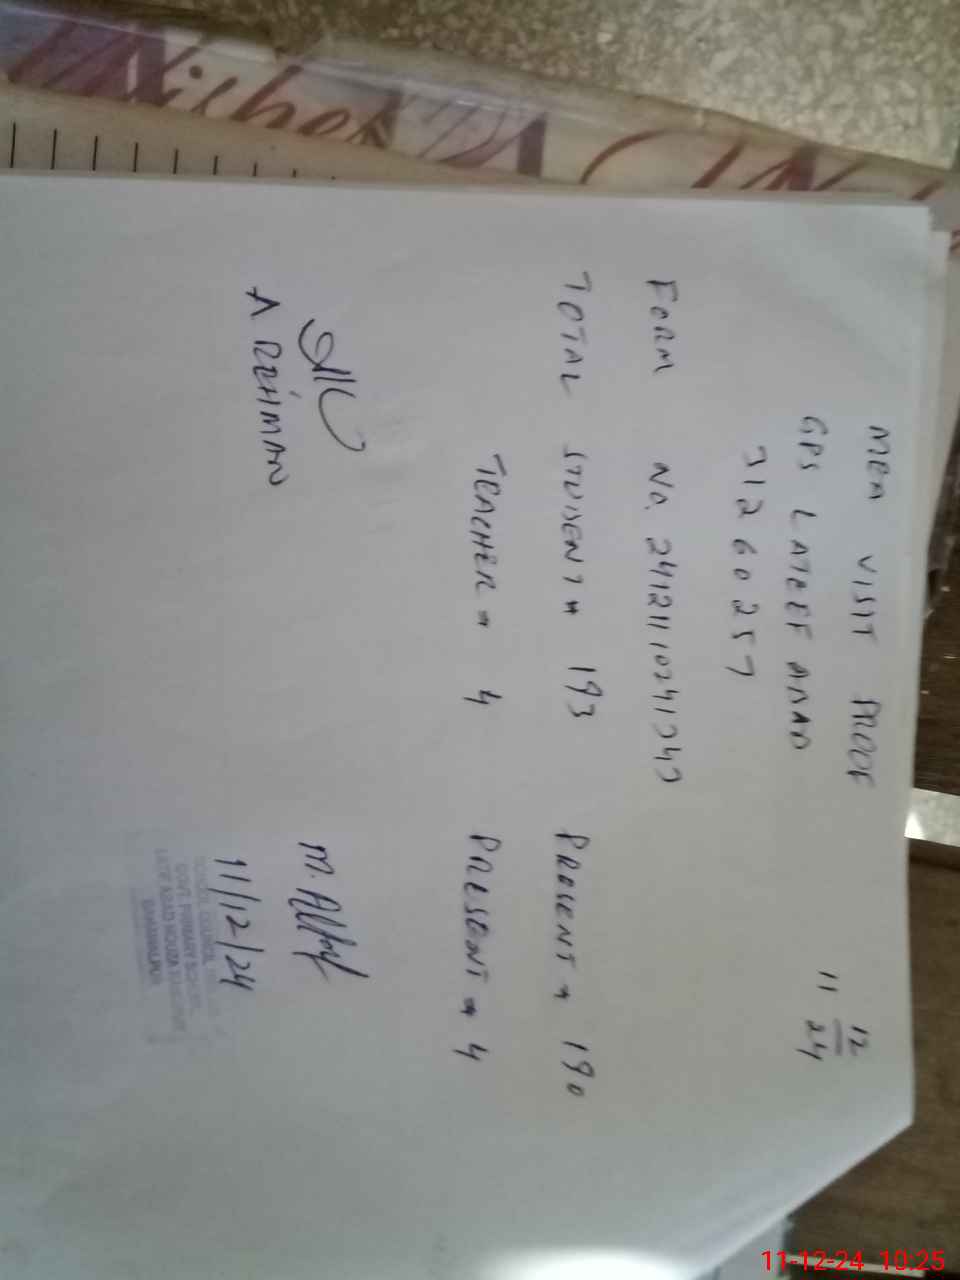 MEA VISIT PROOF
12
11 24
GPS LATEEF ABAD
31260257
FORM NO. 24121110241343
TOTAL STUDENT = 193 PRESENT = 190
TEACHER = 4 PRESENT = 4
A. REHMAN
11/12/24
SCHOOL COUNCIL
GOVT. PRIMARY SCHOOL
BAHAWALPUR
11-12-24 10:25